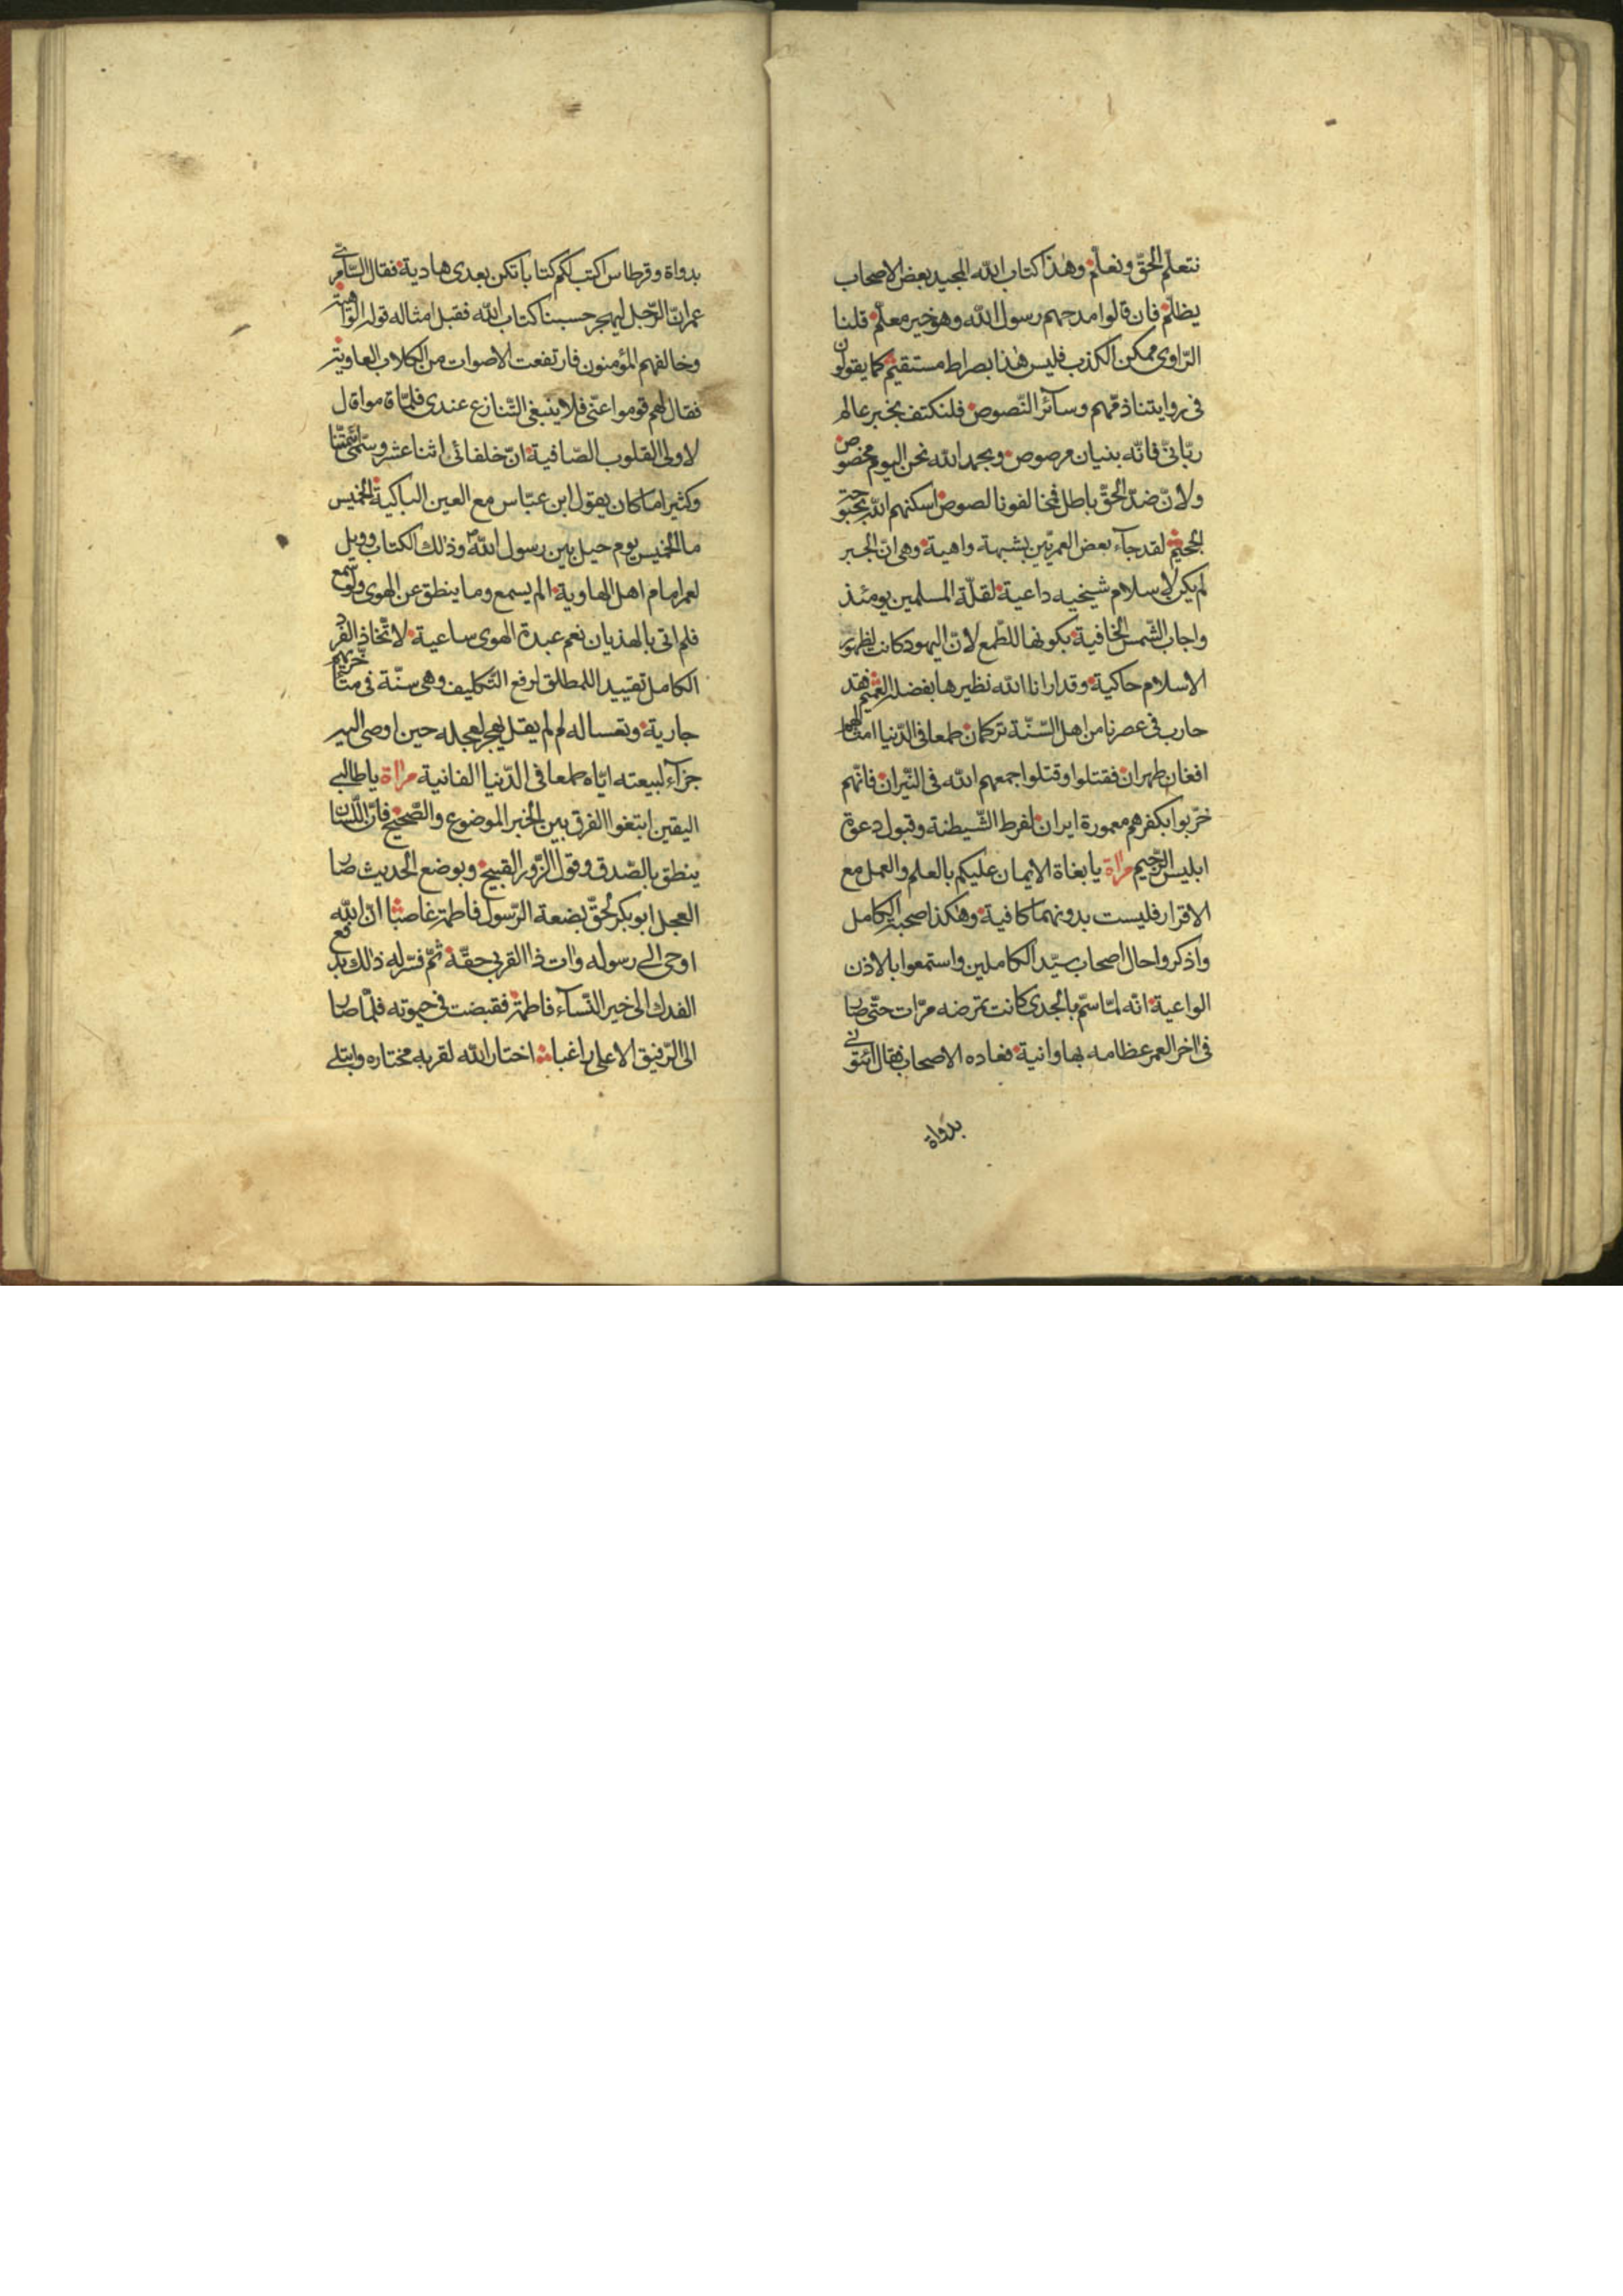 نتعلّم الحقّ ونعلّم وهذا كتاب الله المجيد بعض الاصحاب
يظلّم فان قالوا مدحهم رسول الله وهو خير معلّم قلنا
الرّاوى ممكن الكذب فليس هذا بصراط مستقيم كما يقولون
فى روايتنا ذمّهم وسآئر النّصوص فلنكتف بخبر عالم
ربّانىّ فانّه بنيان مرصوص وبحمد الله نحن اليوم مخصوص
ولانّ ضدّ الحقّ باطل فمخالفونا لصوص اسكنهم الله بحبوحة
الجحيم لقد جآء بعض العمريّين بشبهة واهية وهى انّ الجبر
لم يكن لاسلام شيخيه داعية لقلّة المسلمين يومئذ
واجاب الشّمس الخافية بكونها للطّمع لانّ اليهود كانت لظهور
الاسلام حاكية وقد ارانا الله نظيرها بفضله العميم فقد
حارب فى عصرنا من اهل السّنّة تركمان طمعا فى الدّنيا امثالهما
افغان طهران فقتلوا وقتلوا جمعهم الله فى النّيران فانّهم
خرّبوا بكفرهم معمورة ايران لفرط الشّيطنة وقبول دعوة
ابليس الرّجيم مراة يا بغاة الايمان عليكم بالعلم والعمل مع
الاقرار فليست بدونهما كافية وهكذا صحبة الكامل
واذكروا حال اصحاب سيّد الكاملين واستمعوا بالاذن
الواعية انّه لمّا سمّ بالجدى كانت تمرضه مرّات حتّى صار
فى اخر العمر عظامه بها وانية فعاده الاصحاب فقال ائتونى
بدواة
بدواة وقرطاس اكتب لكم كتابا تكن بعدى هادية فقال السّامرىّ
عمر انّ الرّجل ليهجر حسبنا كتاب الله فقبل امثاله قوله الواهية
وخالفهم المؤمنون فارتفعت الاصوات من الكلاب العاوية
فقال لهم قوموا عنّى فلا ينبغى التّنازع عندى فلمّا قاموا قال
لاولى القلوب الصّافية انّ خلفائى اثنا عشر وسمّى ائمّتنا
وكثيرا ما كان يقول ابن عبّاس مع العين الباكية الخميس
ما الخميس يوم حيل بين رسول الله وذلك الكتاب وويل
لعمر امام اهل الهاوية الم يسمع وما ينطق عن الهوى ولو سمع
فلم اتى بالهذيان نعم عبدة الهوى ساعية لاتّخاذ الفرد
الكامل تقييدا للمطلق لرفع التّكليف وهى سنّة فى متأخّريهم
جارية وتعسا له لم لم يقل ليهجر لعجله حين اوصى اليه
جزآء لبيعته ايّاه طمعا فى الدّنيا الفانية مراة يا طالبى
اليقين ابتغوا الفرق بين الخبر الموضوع والصّحيح فانّ اللّسان
ينطق بالصّدق وقول الزّور القبيح وبوضع الحديث صار
العجل ابو بكر لحقّ بضعة الرّسول فاطمة غاصبا انّ الله
اوحى الى رسوله وات ذا القربى حقّه ثمّ فسّر له ذلك بدفع
الفدك الى خير النّسآء فاطمة فقبضت فى حيوته فلمّا صار
الى الرّفيق الاعلى راغبا اختار الله لقربه مختاره وابتلى